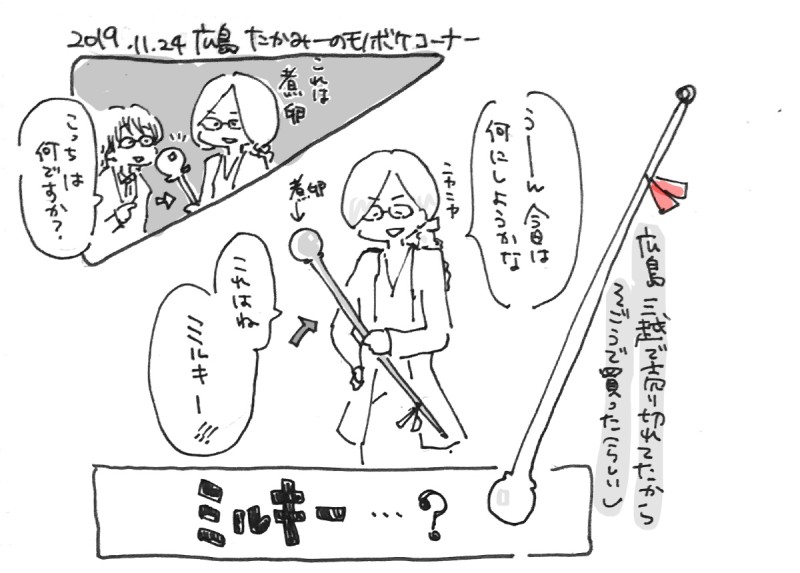 2019.11.24 広島 たかみーのモノボケコーナー
これは
煮卵
こっちは
何ですか?
うーーん 今日は
何にしようかな
ニヤニヤ
煮卵
これはね
ミルキー!!!
広島 三越で売り切れてたから
そごうで買った(らしい)
ミルキー…?